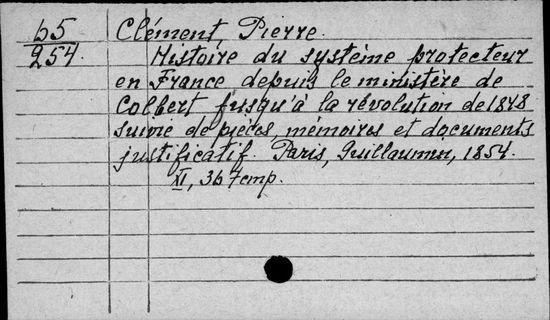 b5 Clément, Pierre.
254. Histoire du système protecteur
en France depuis le ministère de
Colbert jusqu'à la révolution de 1848
suivie de pièces, mémoires et documents
justificatif. Paris, Guillaumin, 1854.
XI, 367 cmp.